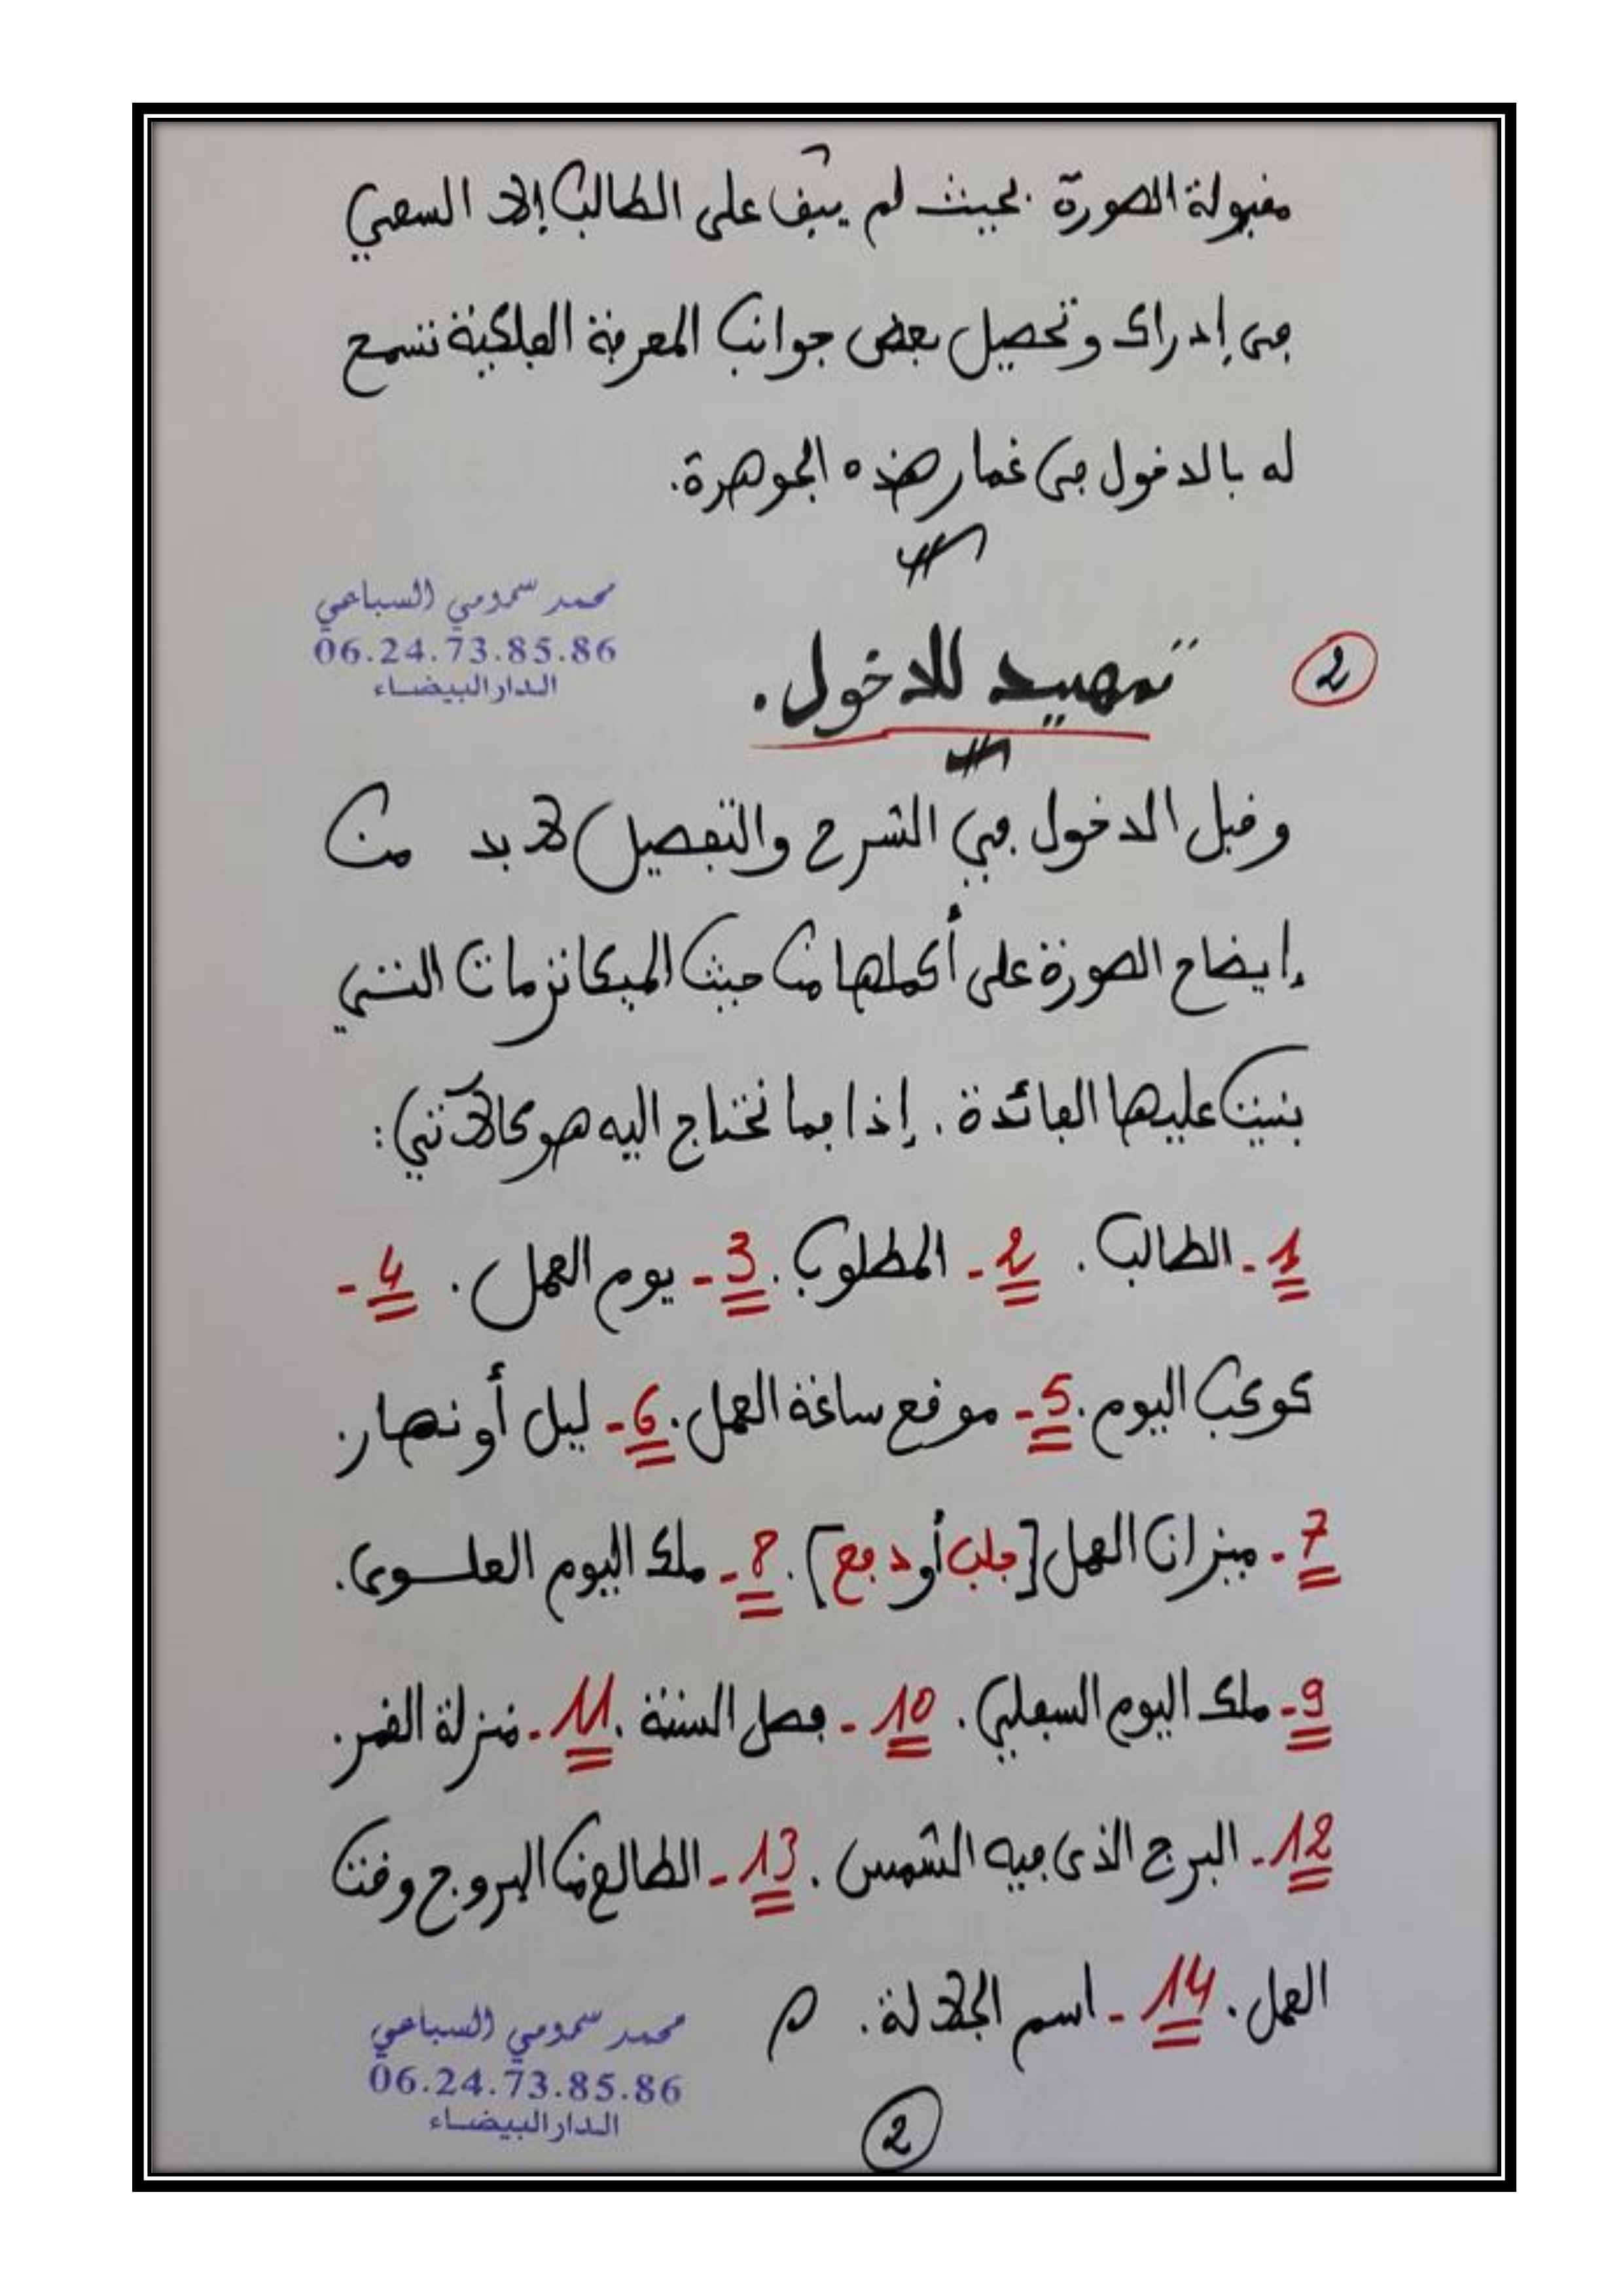 مقبولة الصورة بحيث لم يبق على الطالب إلا السعي
في إدراك وتحصيل بعض جوانب المعرفة الفلكية تسمح
له بالدخول في غمار هذه الجوهرة.
محمد سمومي السباعي
06.24.73.85.86
الدار البيضاء
2 تمهيد للدخول.
وقبل الدخول في الشرح والتفصيل لا بد من
إيضاح الصورة على أكملها من حيث الميكانزمات التي
بنيت عليها الفائدة. إذا فما نحتاج اليه هو كالآتي:
1- الطالب. 2- المطلوب. 3- يوم العمل. 4-
كوكب اليوم. 5- موقع ساعة العمل. 6- ليل أو نهار.
7- ميزان العمل [جلب أو دفع]. 8- ملك اليوم العلوي.
9- ملك اليوم السفلي. 10- فصل السنة. 11- منزلة القمر.
12- البرج الذي فيه الشمس. 13- الطالع من البروج وقت
العمل. 14- اسم الجلالة. م
محمد سمومي السباعي
06.24.73.85.86
الدار البيضاء
2